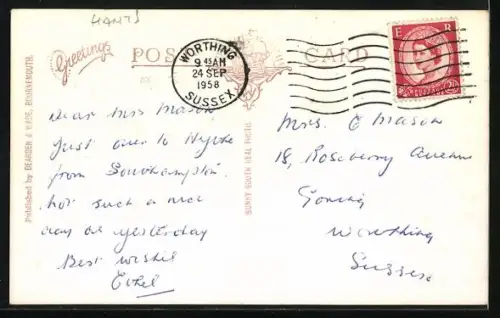 HANTS
Greetings
POST CARD
WORTHING
9 45 AM
24 SEP
1958
SUSSEX
E R
Published by DEARDEN & WADE, BOURNEMOUTH.
SUNNY SOUTH REAL PHOTO.
Dear Mrs Mason
Just over to Hythe
from Southampton.
not such a nice
day as yesterday
Best wishes
Ethel
Mrs. C Mason
18, Roseberry Avenue
Goring
Worthing
Sussex